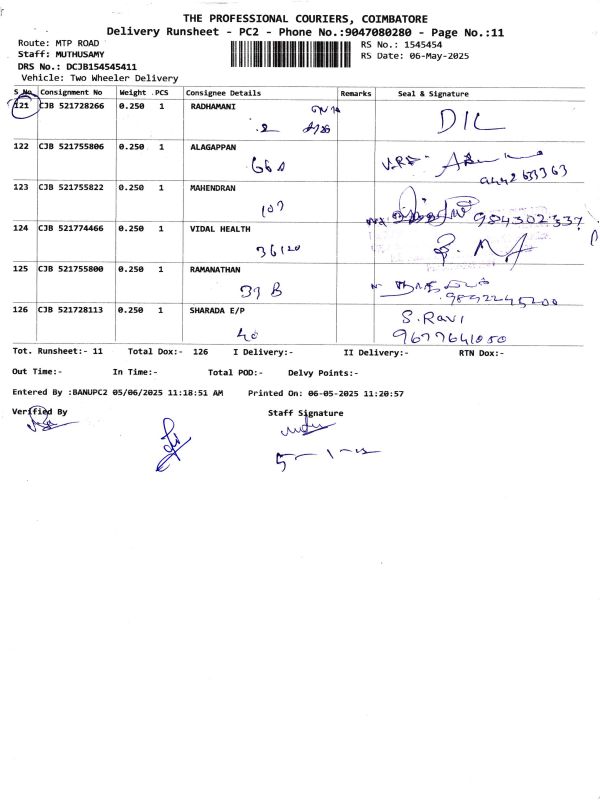 THE PROFESSIONAL COURIERS, COIMBATORE
Delivery Runsheet - PC2 - Phone No.:9047080280 - Page No.:11
Route: MTP ROAD RS No.: 1545454
Staff: MUTHUSAMY RS Date: 06-May-2025
DRS No.: DCJB154545411
Vehicle: Two Wheeler Delivery
S No. Consignment No Weight PCS Consignee Details Remarks Seal & Signature
121 CJB 521728266 0.250 1 RADHAMANI
DIL
122 CJB 521755806 0.250 1 ALAGAPPAN
660
9442633363
123 CJB 521755822 0.250 1 MAHENDRAN
107 984302337
124 CJB 521774466 0.250 1 VIDAL HEALTH
36120
125 CJB 521755800 0.250 1 RAMANATHAN
39 B 9892245200
126 CJB 521728113 0.250 1 SHARADA E/P S. Ravi
40 9677641050
Tot. Runsheet:- 11 Total Dox:- 126 I Delivery:- II Delivery:- RTN Dox:-
Out Time:- In Time:- Total POD:- Delvy Points:-
Entered By :BANUPC2 05/06/2025 11:18:51 AM Printed On: 06-05-2025 11:20:57
Verified By Staff Signature